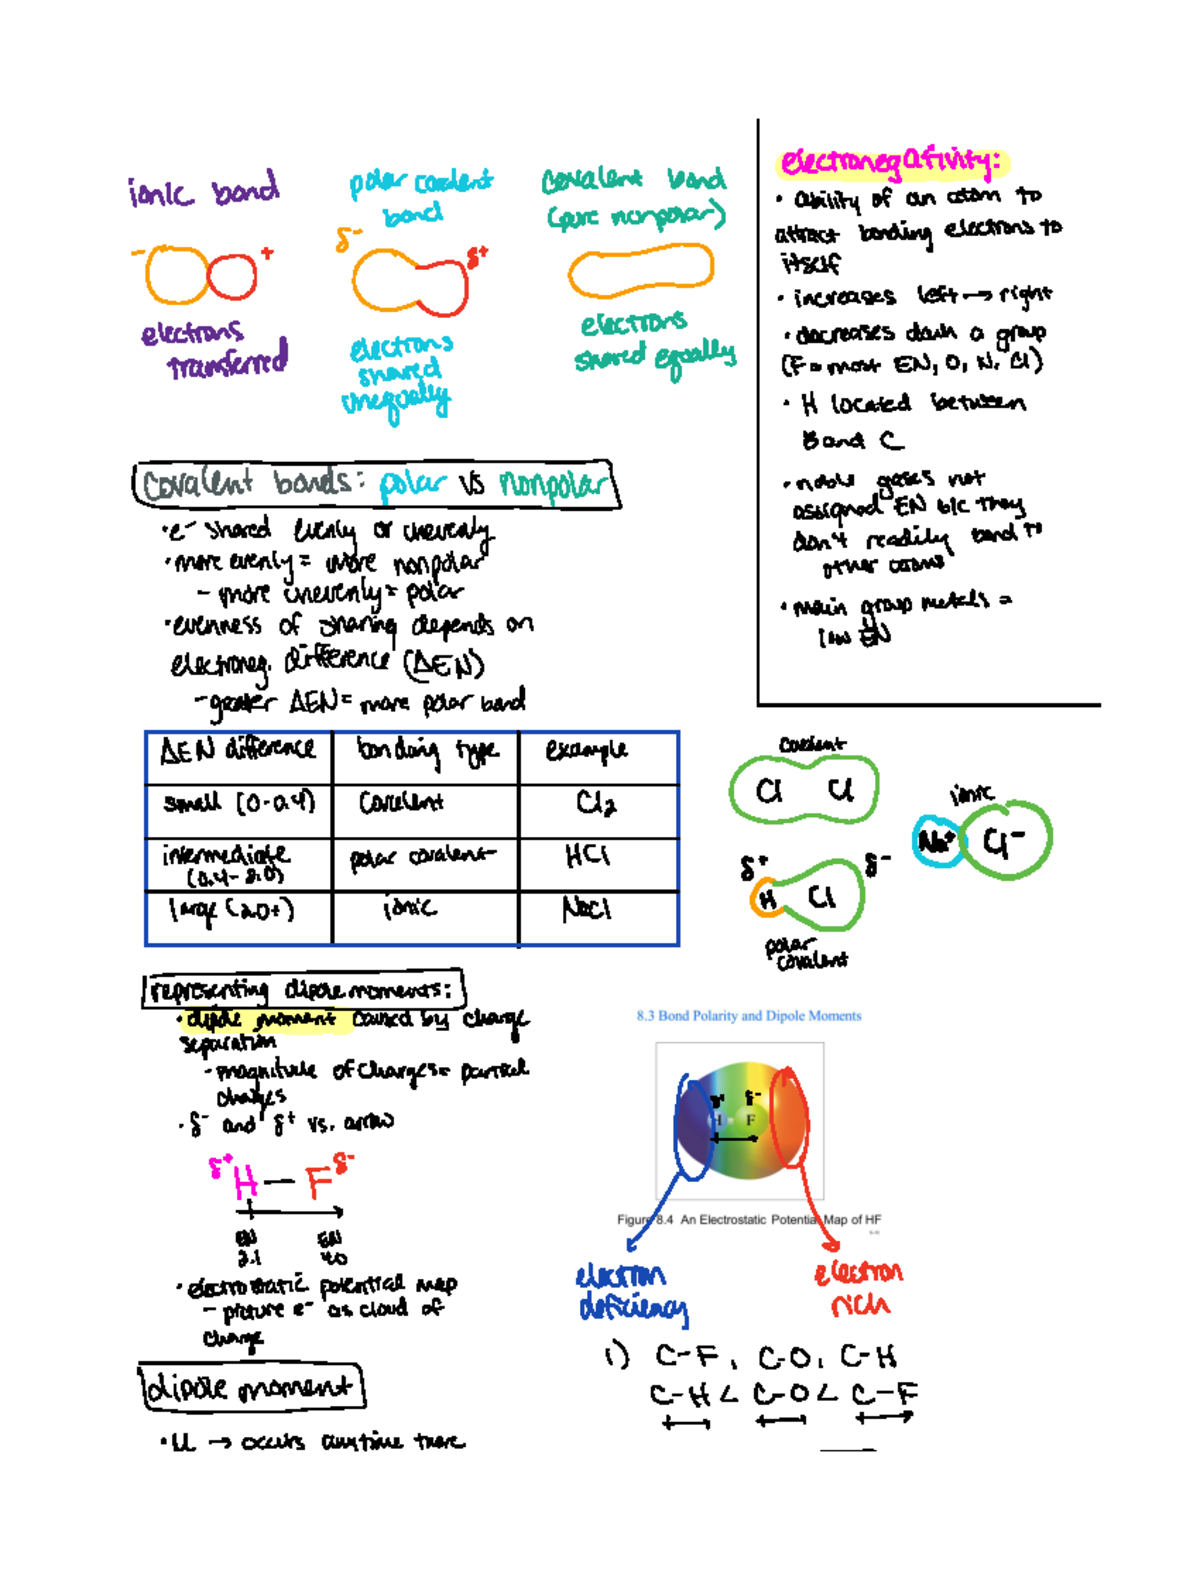 ionic bond
- +
electrons
transferred
polar covalent
bond
δ- δ+
electrons
shared
unequally
covalent bond
(pure nonpolar)
electrons
shared equally
electronegativity:
• ability of an atom to
attract bonding electrons to
itself
• increases left → right
• decreases down a group
(F = most EN, O, N, Cl)
• H located between
B and C
• noble gases not
assigned EN b/c they
don't readily bond to
other atoms
• main group metals =
low EN
covalent bonds: polar vs nonpolar
• e- shared evenly or unevenly
• more evenly = more nonpolar
- more unevenly = polar
• evenness of sharing depends on
electroneg. difference (ΔEN)
- greater ΔEN = more polar bond
ΔEN difference bonding type example
small (0-0.4) covalent Cl2
intermediate polar covalent HCl
(0.4-2.0)
large (2.0+) ionic NaCl
covalent
Cl Cl
ionic
Na+ Cl-
δ+ δ-
H Cl
polar
covalent
representing dipole moments:
• dipole moment caused by charge
separation
- magnitude of charges = partial
charges
• δ- and δ+ vs. arrow
δ+ H — F δ-
EN EN
2.1 4.0
• electrostatic potential map
- picture e- as cloud of
charge
8.3 Bond Polarity and Dipole Moments
δ+ δ-
H F
Figure 8.4 An Electrostatic Potential Map of HF
electron
deficiency
electron
rich
1) C-F, C-O, C-H
C-H < C-O < C-F
dipole moment
• μ → occurs anytime there